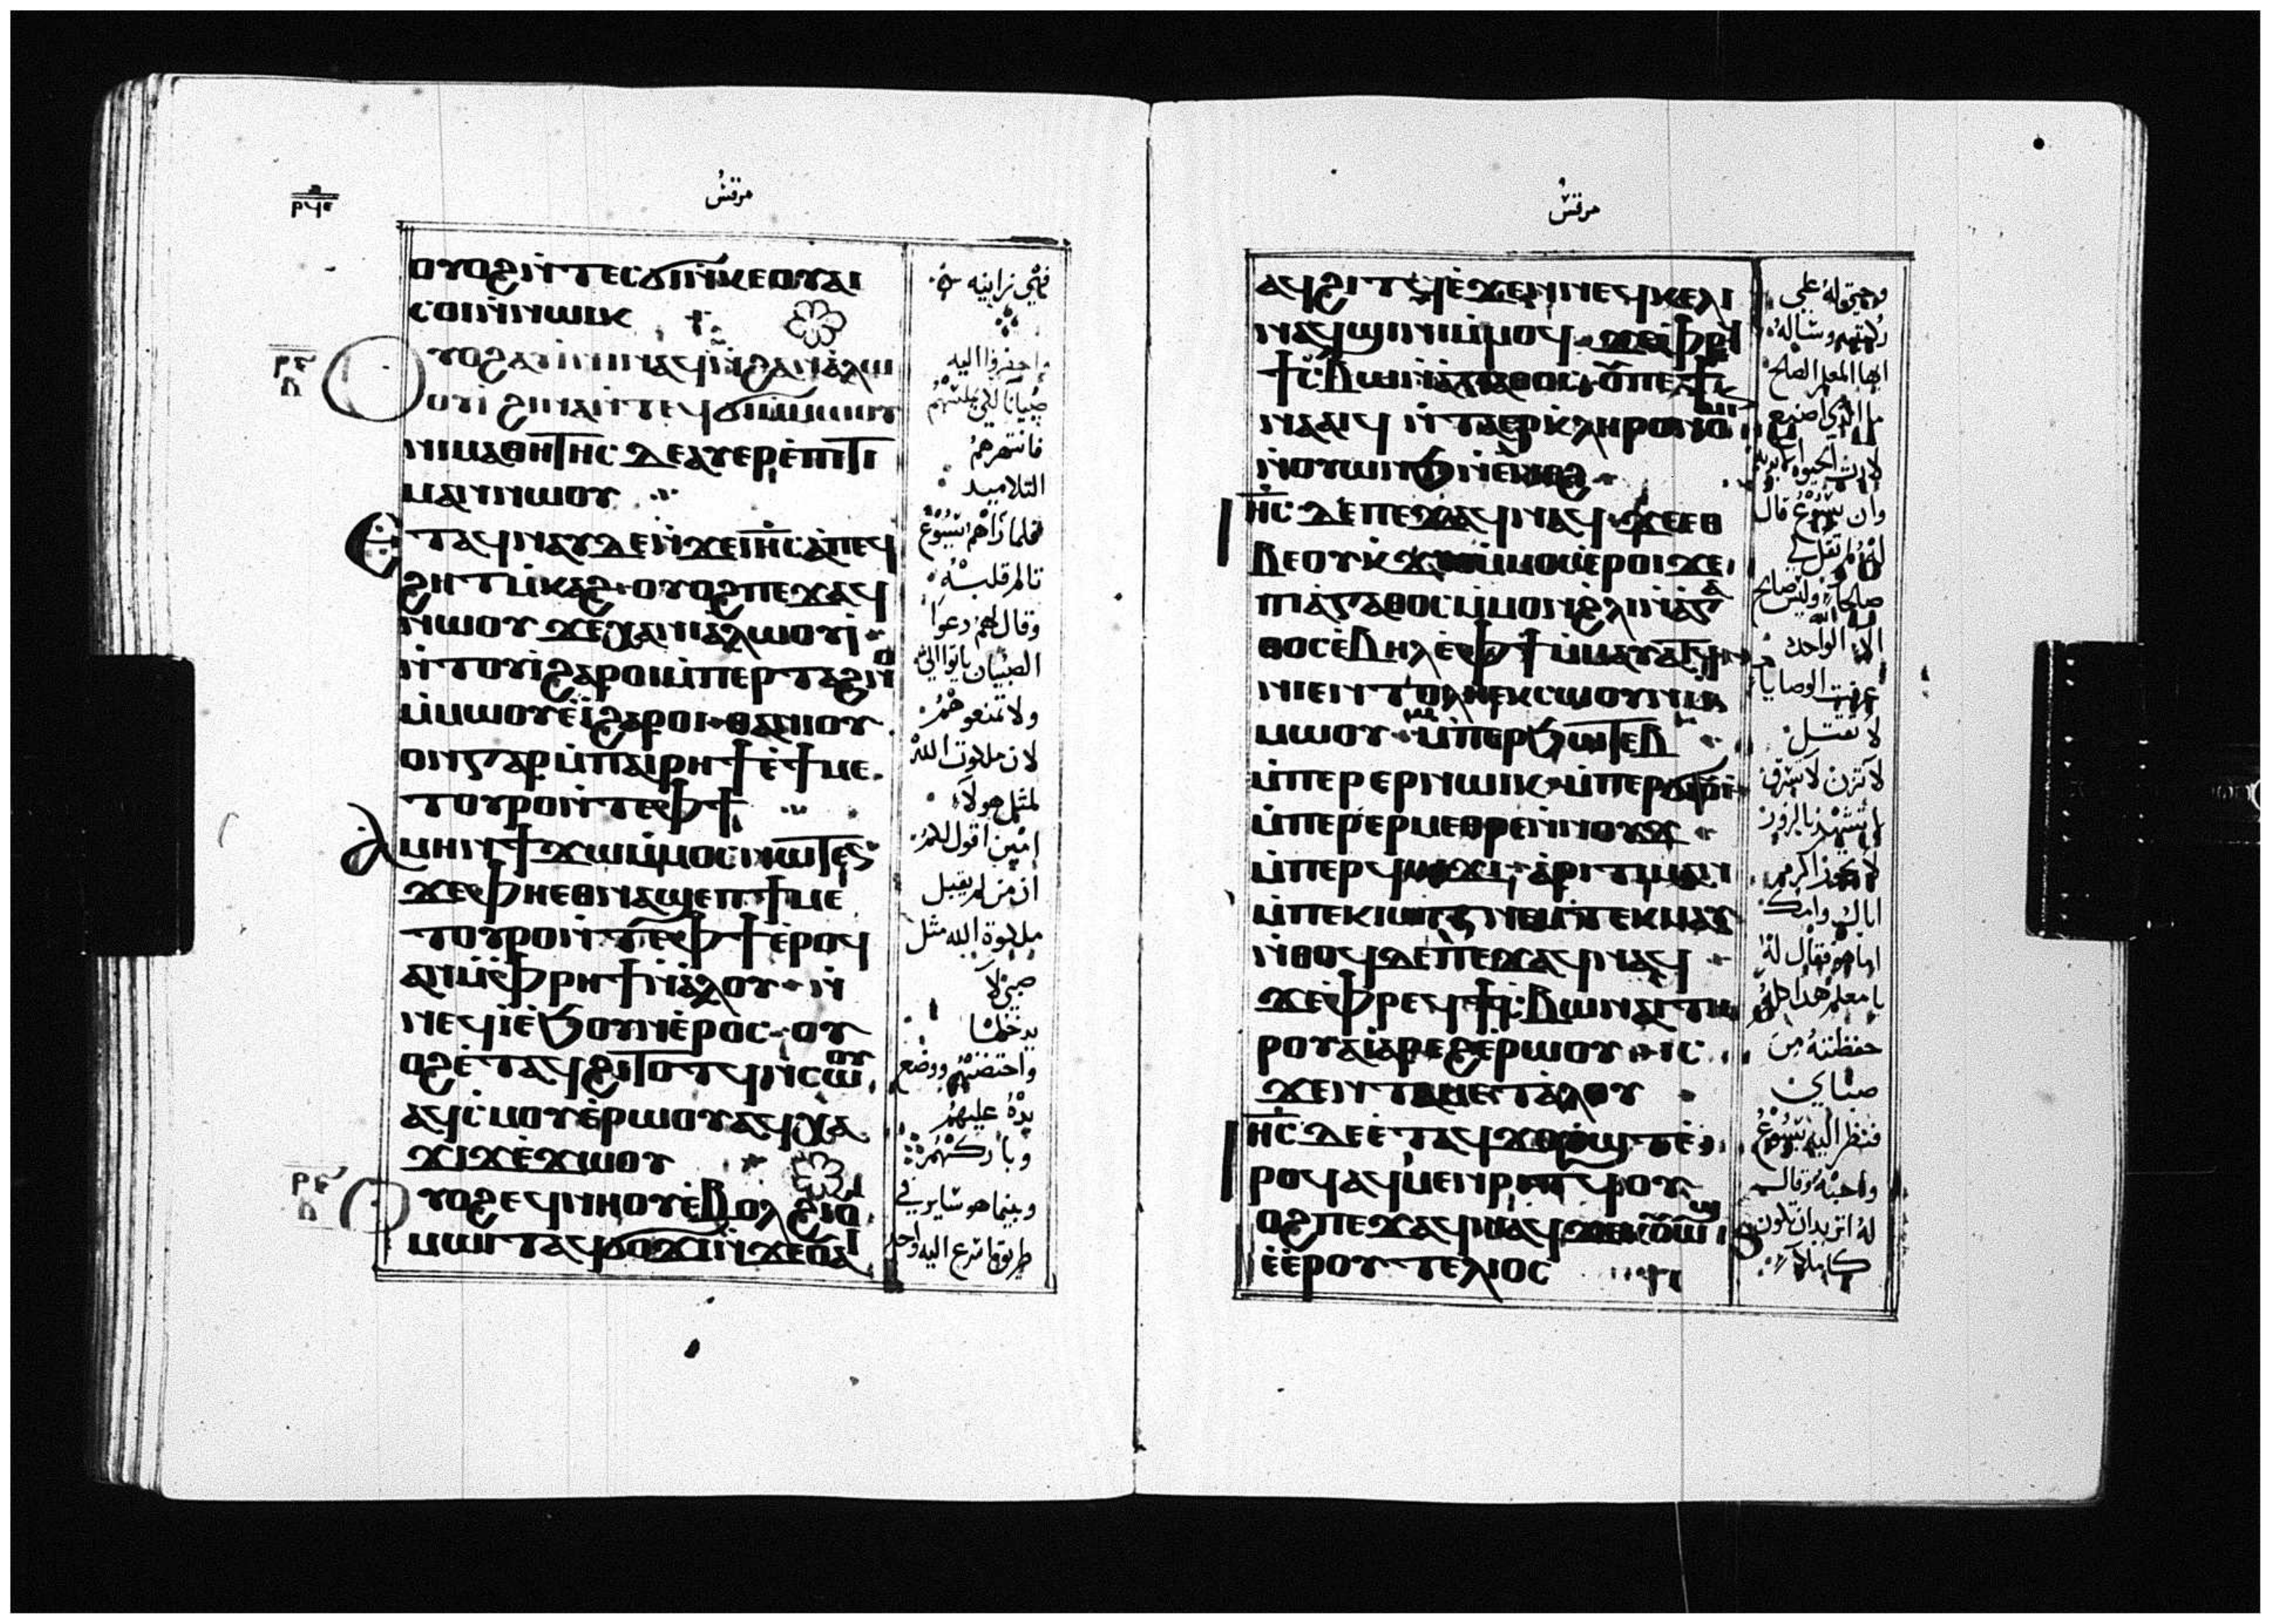 مرقش
ⲟⲩⲟϩⲛ̀ⲧⲉⲥϭⲓⲛ̀ⲕⲉⲟⲩⲁⲓ
ⲥⲟⲓⲛ̀ⲛⲱⲓⲕ
ⲟⲩⲟϩⲁⲩⲓⲛⲓⲛⲁϥⲛ̀ϩⲁⲛⲁ̀ⲗⲱ
ⲟⲩⲓ̀ ϩⲓⲛⲁⲛ̀ⲧⲉϥϭⲓⲛⲉⲙⲱⲟⲩ
ⲛⲓⲙⲁⲑⲏⲧⲏⲥ ⲇⲉⲁⲩⲉⲣⲉ̀ⲡⲓⲧⲓ
ⲙⲁⲛⲛⲱⲟⲩ
ⲉⲧⲁϥⲛⲁⲩⲇⲉⲛ̀ϫⲉⲓⲏⲥ ⲁ̀ⲡⲉϥ
ϩⲏⲧⲙ̀ⲕⲁϩ ⲟⲩⲟϩⲡⲉϫⲁϥ
ⲛⲱⲟⲩ ϫⲉⲭⲁⲛⲓⲁⲗⲱⲟⲩⲓ̀
ⲛ̀ⲧⲟⲩⲓ̀ϩⲁⲣⲟⲓⲙ̀ⲡⲉⲣⲧⲁϩⲛⲟ
ⲙ̀ⲙⲱⲟⲩⲉ̀ⲓ̀ϩⲁⲣⲟⲓ ⲑⲁⲛⲁⲓⲟⲩ
ⲟⲛⲅⲁⲣⲙ̀ⲡⲁⲓⲣⲏϯⲧⲉϯⲙⲉ
ⲧⲟⲩⲣⲟⲛ̀ⲧⲉⲫϯ
ⲁⲙⲏⲛϯϫⲱⲙ̀ⲙⲟⲥⲛⲱⲧⲉⲛ
ϫⲉⲫⲏⲉⲑⲛⲁϣⲉⲡϯⲙⲉ
ⲧⲟⲩⲣⲟⲛ̀ⲧⲉⲫϯⲉ̀ⲣⲟϥ
ⲁⲛⲙ̀ⲫⲣⲏϯⲛ̀ⲁ̀ⲗⲟⲩ ⲛ̀
ⲛⲉϥⲓ̀ⲉ̀ϧⲟⲩⲛⲉ̀ⲣⲟⲥ ⲟⲩ
ⲟϩⲉ̀ⲧⲁϥϩⲓⲧⲟⲧϥⲛ̀ⲥⲱⲟⲩ
ⲁϥⲥ̀ⲙⲟⲩⲉ̀ⲣⲱⲟⲩⲁϥⲭⲁ
ϫⲓϫⲉ̀ϫⲱⲟⲩ
ⲟⲩⲟϩⲉϥⲛⲏⲟⲩⲉ̀ⲃⲟⲗϩⲓⲫ
ⲙⲱⲓⲧⲁϥϭⲟϫⲓⲛ̀ϫⲉⲟⲩⲁⲓ
فهي زانيه
واحضروا اليه
صبيانًا لكي يلمسهم
فانتهرهم
التلاميد
فلما راهم يسوع
تالم قلبه
وقال لهم دعوا
الصبيان ياتوا اليّ
ولا تمنعوهم
لان ملكوت الله
لمثل هولاء
امين اقول لكم
ان من لم يقبل
ملكوة الله مثل
صبي لا
يدخلها
واحتضنهم ووضع
يده عليهم
وباركهم
وبينما هو ساير في
طريق اسرع اليه واحد
مرقش
ⲁϥϩⲓⲧϥⲉ̀ϫⲉⲛⲛⲉϥⲕⲉⲗⲓ
ⲛⲁϥϣⲓⲛⲓⲙ̀ⲙⲟϥ ϫⲉⲫⲣⲉϥ
ϯⲥ̀ⲃⲱⲛ̀ⲁ̀ⲅⲁⲑⲟⲥ ⲟⲩⲡⲉϯ
ⲛⲁⲁⲓϥ ⲛ̀ⲧⲁⲉⲣⲕ̀ⲗⲏⲣⲟⲛⲟⲙⲓⲛ
ⲛ̀ⲟⲩⲱⲛϧⲛ̀ⲉ̀ⲛⲉϩ
ⲓⲏⲥ ⲇⲉⲡⲉϫⲁϥⲛⲁϥ ϫⲉⲉⲑ
ⲃⲉⲟⲩⲕ̀ϫⲱⲙ̀ⲙⲟⲥⲉ̀ⲣⲟⲓϫⲉ
ⲡⲓⲁ̀ⲅⲁⲑⲟⲥⲙ̀ⲙⲟⲛϩ̀ⲗⲓⲛ̀ⲁ̀ⲅⲁ
ⲑⲟⲥⲉ̀ⲃⲏⲗⲉ̀ⲫϯⲙ̀ⲙⲁⲩⲁⲧϥ
ⲛⲓⲉⲛⲧⲟⲗⲏⲕⲥⲱⲟⲩⲛⲙ̀
ⲙⲱⲟⲩ ⲙ̀ⲡⲉⲣϧⲱⲧⲉⲃ
ⲙ̀ⲡⲉⲣⲉⲣⲛⲱⲓⲕ ⲙ̀ⲡⲉⲣϭⲓⲟⲩⲓ̀
ⲙ̀ⲡⲉⲣⲉⲣⲙⲉⲑⲣⲉⲛⲛⲟⲩϫ
ⲙ̀ⲡⲉⲣϥⲱϫⲓ ⲁ̀ⲣⲓⲧⲓⲙⲁⲛ
ⲙ̀ⲡⲉⲕⲓⲱⲧⲛⲉⲙⲧⲉⲕⲙⲁⲩ
ⲛ̀ⲑⲟϥⲇⲉⲡⲉϫⲁϥⲛⲁϥ
ϫⲉⲫⲣⲉϥϯⲥ̀ⲃⲱⲛⲁⲓⲧⲏ
ⲣⲟⲩⲁⲓⲁ̀ⲣⲉϩⲉ̀ⲣⲱⲟⲩ ⲓⲥ
ϫⲉⲛⲧⲁⲙⲉⲧⲁ̀ⲗⲟⲩ
ⲓⲏⲥ ⲇⲉⲉ̀ⲧⲁϥϫⲟⲩϣⲧⲉ̀
ⲣⲟϥⲁϥⲙⲉⲛⲣⲓⲧϥⲟⲩ
ⲟϩⲡⲉϫⲁϥⲛⲁϥϫⲉⲕⲟⲩⲱϣ
ⲉ̀ⲉⲣⲟⲩⲧⲉⲗⲓⲟⲥ
وجثى له علي
ركبتيه وساله
ايها المعلم الصالح
ما الذي اصنع
لارث الحيوه الابديه
وان يسوع قال
له لم تقل لي
صالحًا وليس صالح
الا الله الواحد
عرفت الوصايا
لا تقتل
لا تزن لا تسرق
لا تشهد بالزور
اكرم
اباك وامك
اما هو فقال له
يا معلم هدا كله
حفظته من
صباي
فنظر اليه يسوع
واحبه وقال
له اتريد ان تكون
كاملًا